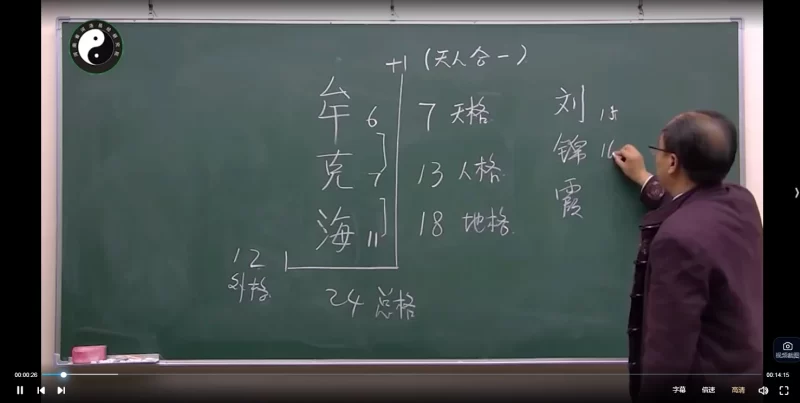 +1 (天人合一)
牟 6 7 天格
克 7 13 人格
海 11 18 地格
12 1
外格
24 总格
刘 15
锦 16
霞
00:00:26
00:14:15
字幕 倍速 高清
视频截图